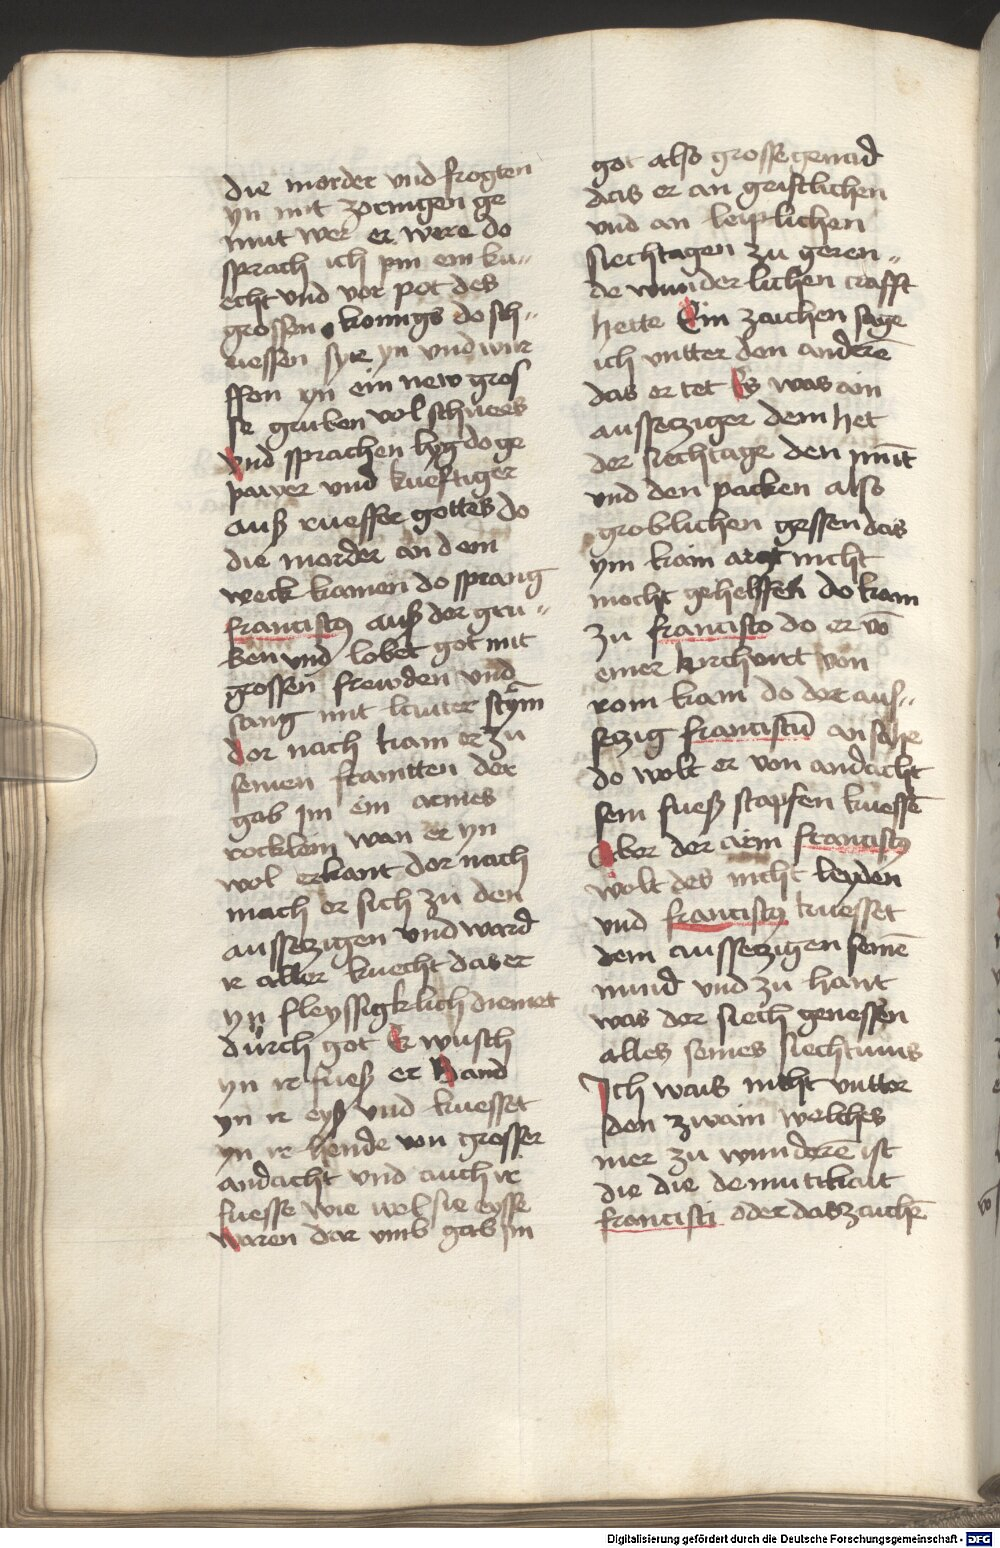 die morder vnd frogten
yn mit zornigen ge
mut wer er were do
sprach ich pin ein kn„
echt vnd vor pot des
grossen konings do sch„
uessen syr yn vnd wur
ffen yn ein new gros
se gruben vol schnees
vnd sprachen lyg do ge
pawer vnd kueftiger
auß rueffer gottes do
die morder an dem
weck kamen do sprang
franciscꝰ auß der gru„
ben vnd lobet got mit
grossen frewden vnd
sang mit lauter stym̄
dor nach kam er zu
seinen framtten der
gab im ein armes
rocklein wan er yn
wol erkant dor nach
mach er sich zu den
aussetzigen vnd ward
ir aller knecht das er
yn fleyssigklich dienet
durch got Er wusch
yn ir fueß er Band
yn ir eyß vnd kuesset
yn ir hende von grosser
andacht vnd auch ir
fuesse wie wol sie eysse
waren dar vmb gab im
got also grosse genad
das er an geistlichen
vnd an leiplichen
siechtagen zu geren„
de wunderlichen crafft
hette Ein zaichen sage
ich vntter den anderē
das er tet Es was ain
aussetziger dem het
der siechtage den mūt
vnd den packen also
groblichen gessen das
ym kain arzt nicht
mocht gehelffen do kam
zu francisco do er vō
einer kirchuart von
rom kam do der aus„
setzig franciscū an sahe
do wolt er von andacht
sein fueß stapfen kuessē
Aber der arm franciscꝰ
wolt des nicht leyden
vnd franciscꝰ kuesset
dem aussetzigen seinē
mund vnd zu hant
was der siech genessen
alles seines siechtums
Ich wais nicht vntter
den zwain welches
mer zu wunderē ist
die die demutikait
francisci oder das zaichē
Digitalisierung gefördert durch die Deutsche Forschungsgemeinschaft - DFG